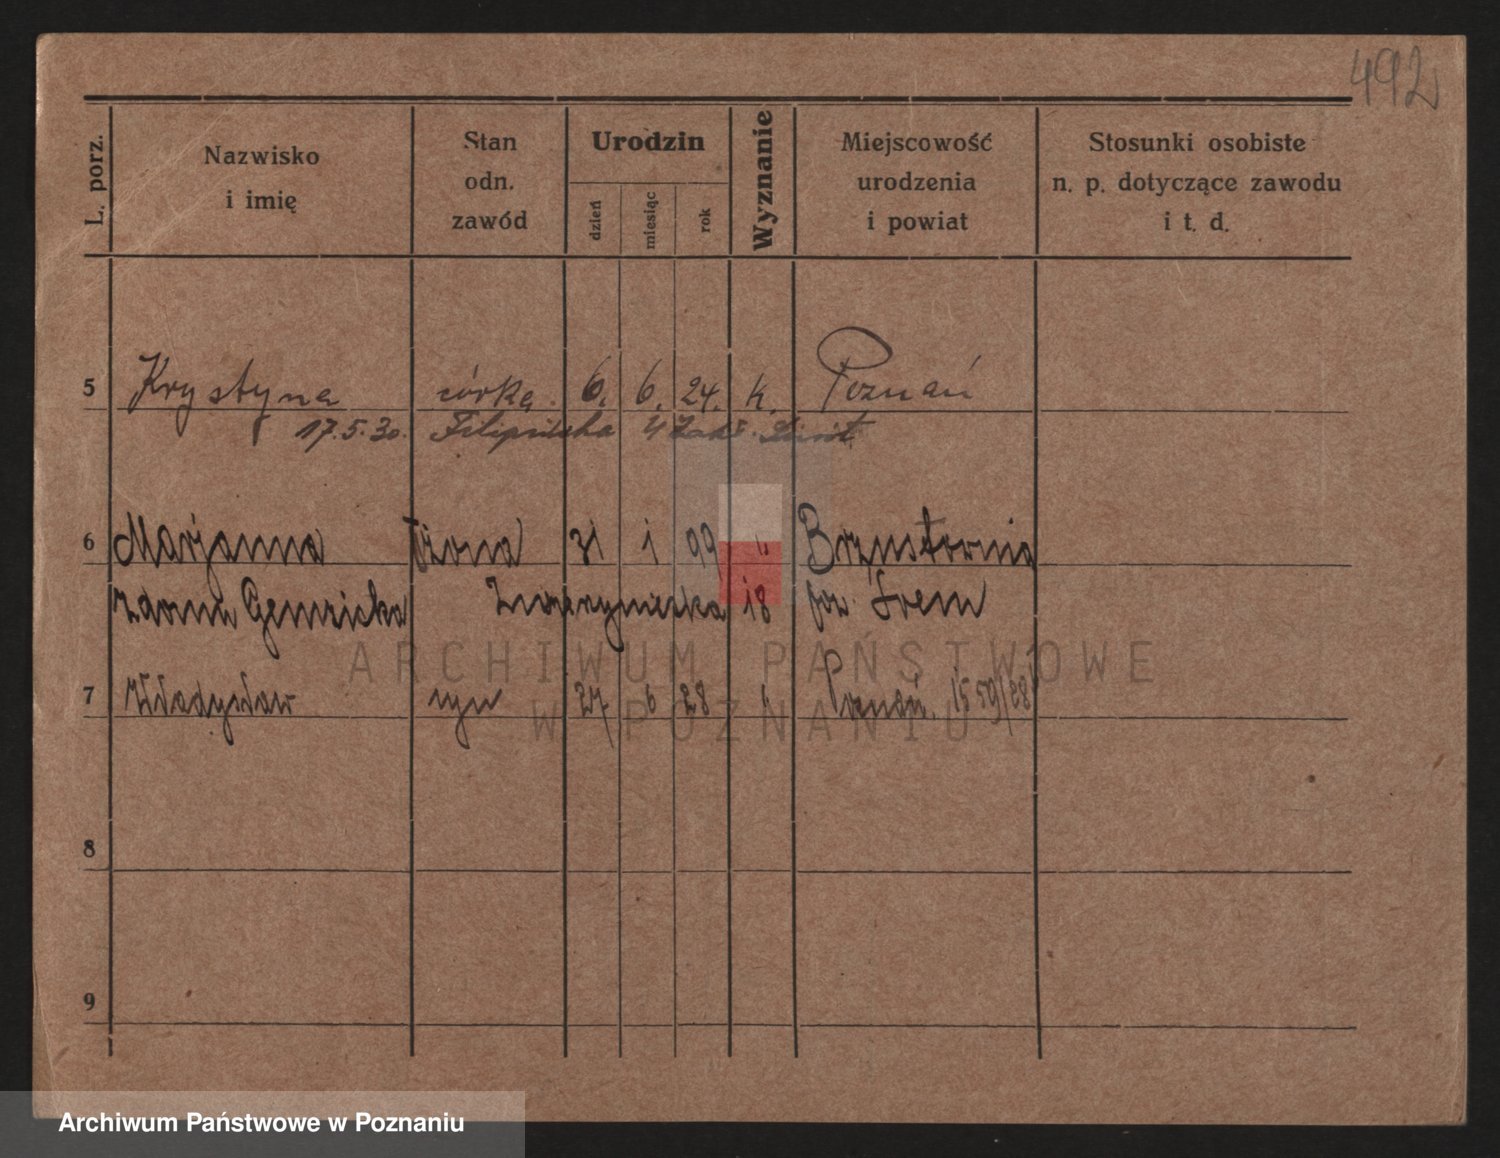 492
L. porz.
Nazwisko
i imię
Stan
odn.
zawód
Urodzin
dzień
miesiąc
rok
Wyznanie
Miejscowość
urodzenia
i powiat
Stosunki osobiste
n. p. dotyczące zawodu
i t. d.
5 Krystyna córka. 6. 6. 24. k. Poznań
17.5.30. Filipińska 4
6 Marjanna żona 31 1 99 Brzustownia
18 pow. Śrem
7 Władysław syn 27 6 28 Poznań. 1559/28
8
9
ARCHIWUM PAŃSTWOWE
W POZNANIU
Archiwum Państwowe w Poznaniu